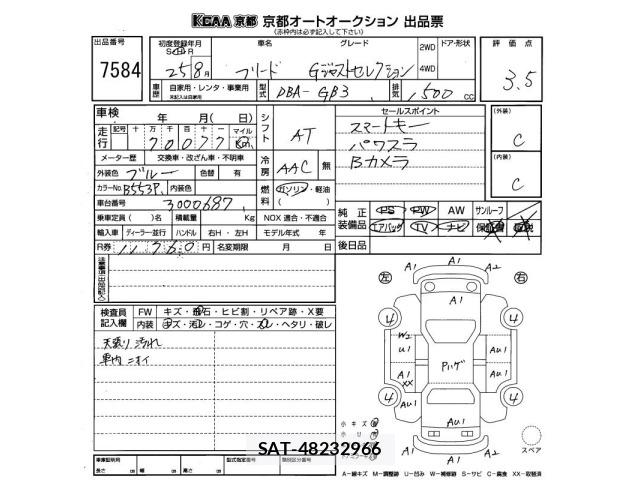 KCAA 京都 京都オートオークション 出品票
(赤枠内は必ず記入して下さい)
出品番号
7584
初度登録年月
車名
グレード
2WD
4WD
ドア・形状
25 8月
フリード
Gジャストセレクション
評価点
3.5
車歴
自家用・レンタ・事業用
未記入は自家用
型式
DBA-GB3
排気
1500 cc
車検 年 月( 日)
走行
記号 十 万 千 百 十 一 マイル
70077 Km
シフト
AT
セールスポイント
スマートキー
パワスラ
Bカメラ
(外装)
C
(内装)
C
メーター歴 交換車・改ざん車・不明車
外装色 ブルー 色替 有
カラーNo. B553P. 内装色
冷房
AAC 無
燃料
ガソリン・軽油
( )
車台番号 3000687
乗車定員( )名 積載量 Kg NOX 適合・不適合
輸入車 ディーラー・並行 ハンドル 右H・左H モデル年式 年
R券 11,760円 名変期限 月 日
純正装備品
PS PW AW サンルーフ
エアバッグ TV ナビ
後日品
注意事項(出品店記入)
検査員記入欄
FW キズ・飛石・ヒビ割・リペア跡・X要
内装 キズ・汚レ・コゲ・穴・スレ・ヘタリ・破レ
天張り汚れ
車内ニオイ
左
右
A1
A1
A2
A1
4
4
W2
U1
AU1
Pハゲ
A1
XX
A1
4
4
AU1
AU1
A1
A1
A2
スペア
小キズ
SAT-48232966
車庫証明用
長さ cm 幅 cm 高さ cm
型式指定番号
類別区分番号
A-線キズ M-調整跡 U-凹み W-補修跡 S-サビ C-腐食 XX-取替済